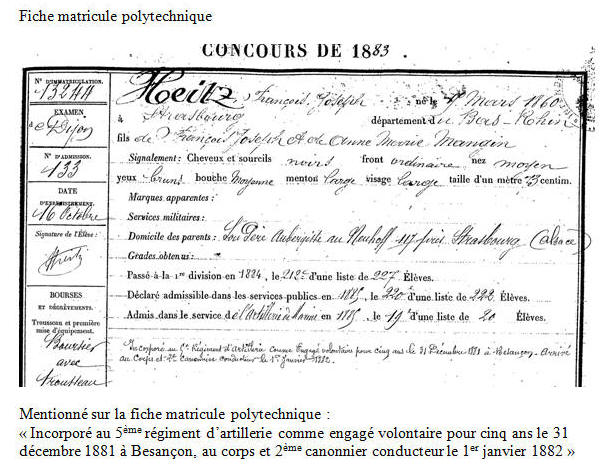 Fiche matricule polytechnique
CONCOURS DE 1883.
N° D'IMMATRICULATION.
13244
EXAMEN
à Dijon
N° D'ADMISSION.
133
DATE
D'ENREGISTREMENT.
16 Octobre
Signature de l'Élève :
Heitz
BOURSES
ET DÉGRÈVEMENTS.
Trousseau et première
mise d'équipement.
Boursier
avec
trousseau
Heitz François Joseph né le 7 Mars 1860
à Strasbourg département du Bas-Rhin
fils de François Joseph et de Anne Marie Mangin
Signalement : Cheveux et sourcils noirs front ordinaire nez moyen
yeux bruns bouche Moyenne menton large visage large taille d'un mètre 73 centim.
Marques apparentes :
Services militaires :
Domicile des parents : Son Père Aubergiste au Neuhoff 117 près Strasbourg (Alsace)
Grades obtenus :
Passé à la 1re division en 1884, le 212e d'une liste de 227 Élèves.
Déclaré admissible dans les services publics en 1885, le 220e d'une liste de 222 Élèves.
Admis dans le service de l'artillerie de Marine en 1885, le 19 d'une liste de 20 Élèves.
Incorporé au 5e Régiment d'Artillerie comme Engagé volontaire pour cinq ans le 31 Décembre 1881 à Besançon. Arrivé
au Corps et 2e Canonnier conducteur le 1er Janvier 1882.
Mentionné sur la fiche matricule polytechnique :
« Incorporé au 5ème régiment d'artillerie comme engagé volontaire pour cinq ans le 31
décembre 1881 à Besançon, au corps et 2ème canonnier conducteur le 1er janvier 1882 »